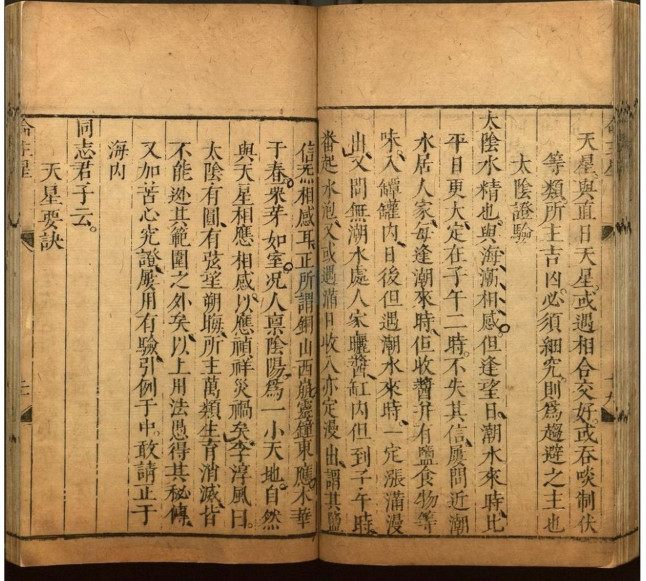 天星與直日天星或遇相合交好或吞啖制伏
等類所主吉凶必須細究則為趨避之主也
太陰證驗
太陰水精也與海潮相感但逢望日潮水來時比
平日更大定在子午二時不失其信屢問近潮
水居人家每逢潮來時但收醬并有鹽食物等
味入罈罐內日後但遇潮水來時一定漲滿漫
出又問無潮水處人家曬醬缸內但到子午時
番起水泡又或遇滿日收入亦定漫出謂其鹽
信炁相感耳正所謂銅山西崩靈鐘東應木華
于春粟芽如室况人稟陰陽為一小天地自然
與天星相應相感以應禎祥災禍矣李淳風曰
太陰有圓有弦望朔晦所主萬類生育消滅皆
不能逃其範圍之外矣以上用法慿得其秘傳
又加苦心究證屢用有驗引例于中敢請正于
海內
同志君子云
天星要訣